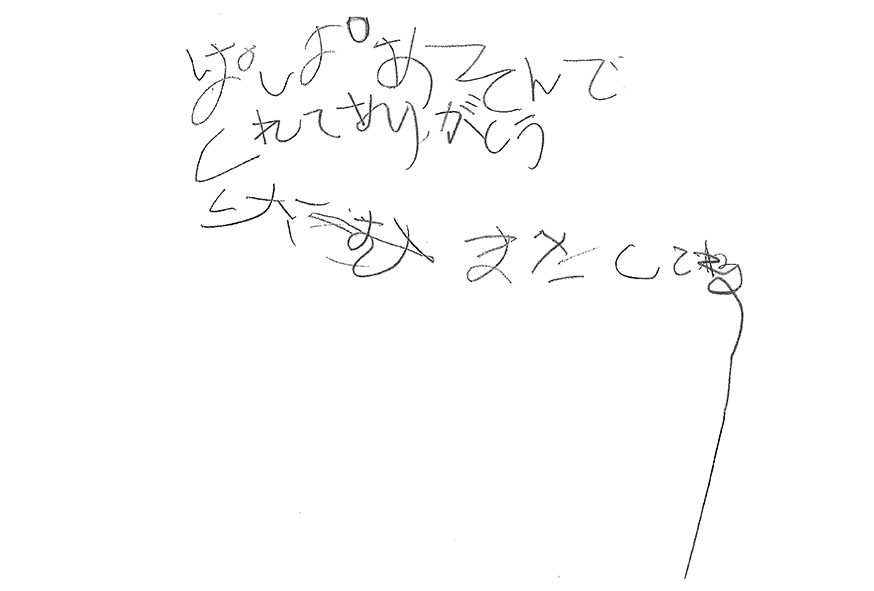 ぱぱ あそんで
くれてありがとう
また してね